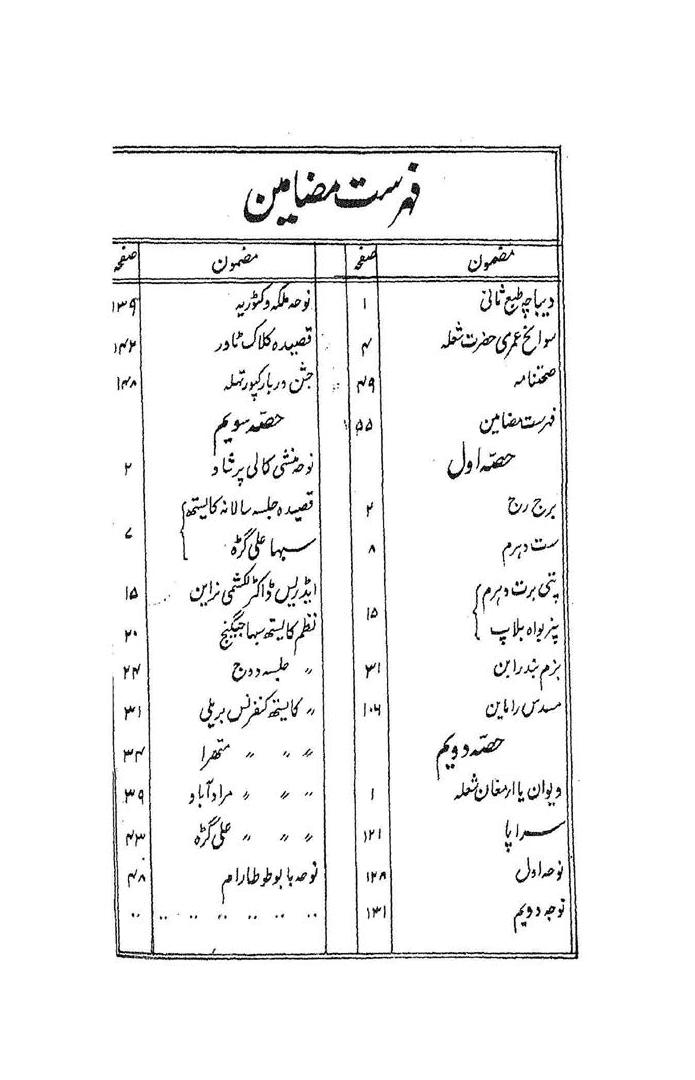 فہرست مضامین
مضمون صفحہ
دیباچہ طبع ثانی ۱
سوانح عمری حضرت شعلہ ۴
صحتنامہ ۴۹
فہرست مضامین ۵۵
حصّہ اول
برج رج ۲
ست دہرم ۸
پتی برت دہرم
پنر بواہ بلاپ ۱۵
بزم بندرابن ۳۱
مسدس راماین ۱۰۶
حصّہ دویم
دیوان یا ارمغان شعلہ ۱
سراپا ۱۲۱
نوحہ اول ۱۲۸
نوحہ دویم ۱۳۱
مضمون صفحہ
نوحہ ملکہ وکٹوریہ ۱۳۹
قصیدہ کلاک ٹاور ۱۴۲
جشن دربار کپورتہلہ ۱۴۸
حصّہ سویم
نوحہ منشی کالی پرشاد ۲
قصیدہ جلسہ سالانہ کایستھ
سبہا علی گڑہ ۷
ایڈریس ڈاکٹر لکشمی نراین ۱۵
نظم کایستھ سبہا جیگنج ۲۰
〃 جلسہ دوج ۲۴
〃 کایستھ کنفرنس بریلی ۳۱
〃 〃 〃 متھرا ۳۴
〃 〃 〃 مرادآباد ۳۹
〃 〃 〃 علی گڑہ ۴۳
نوحہ بابو طوطارام ۴۸